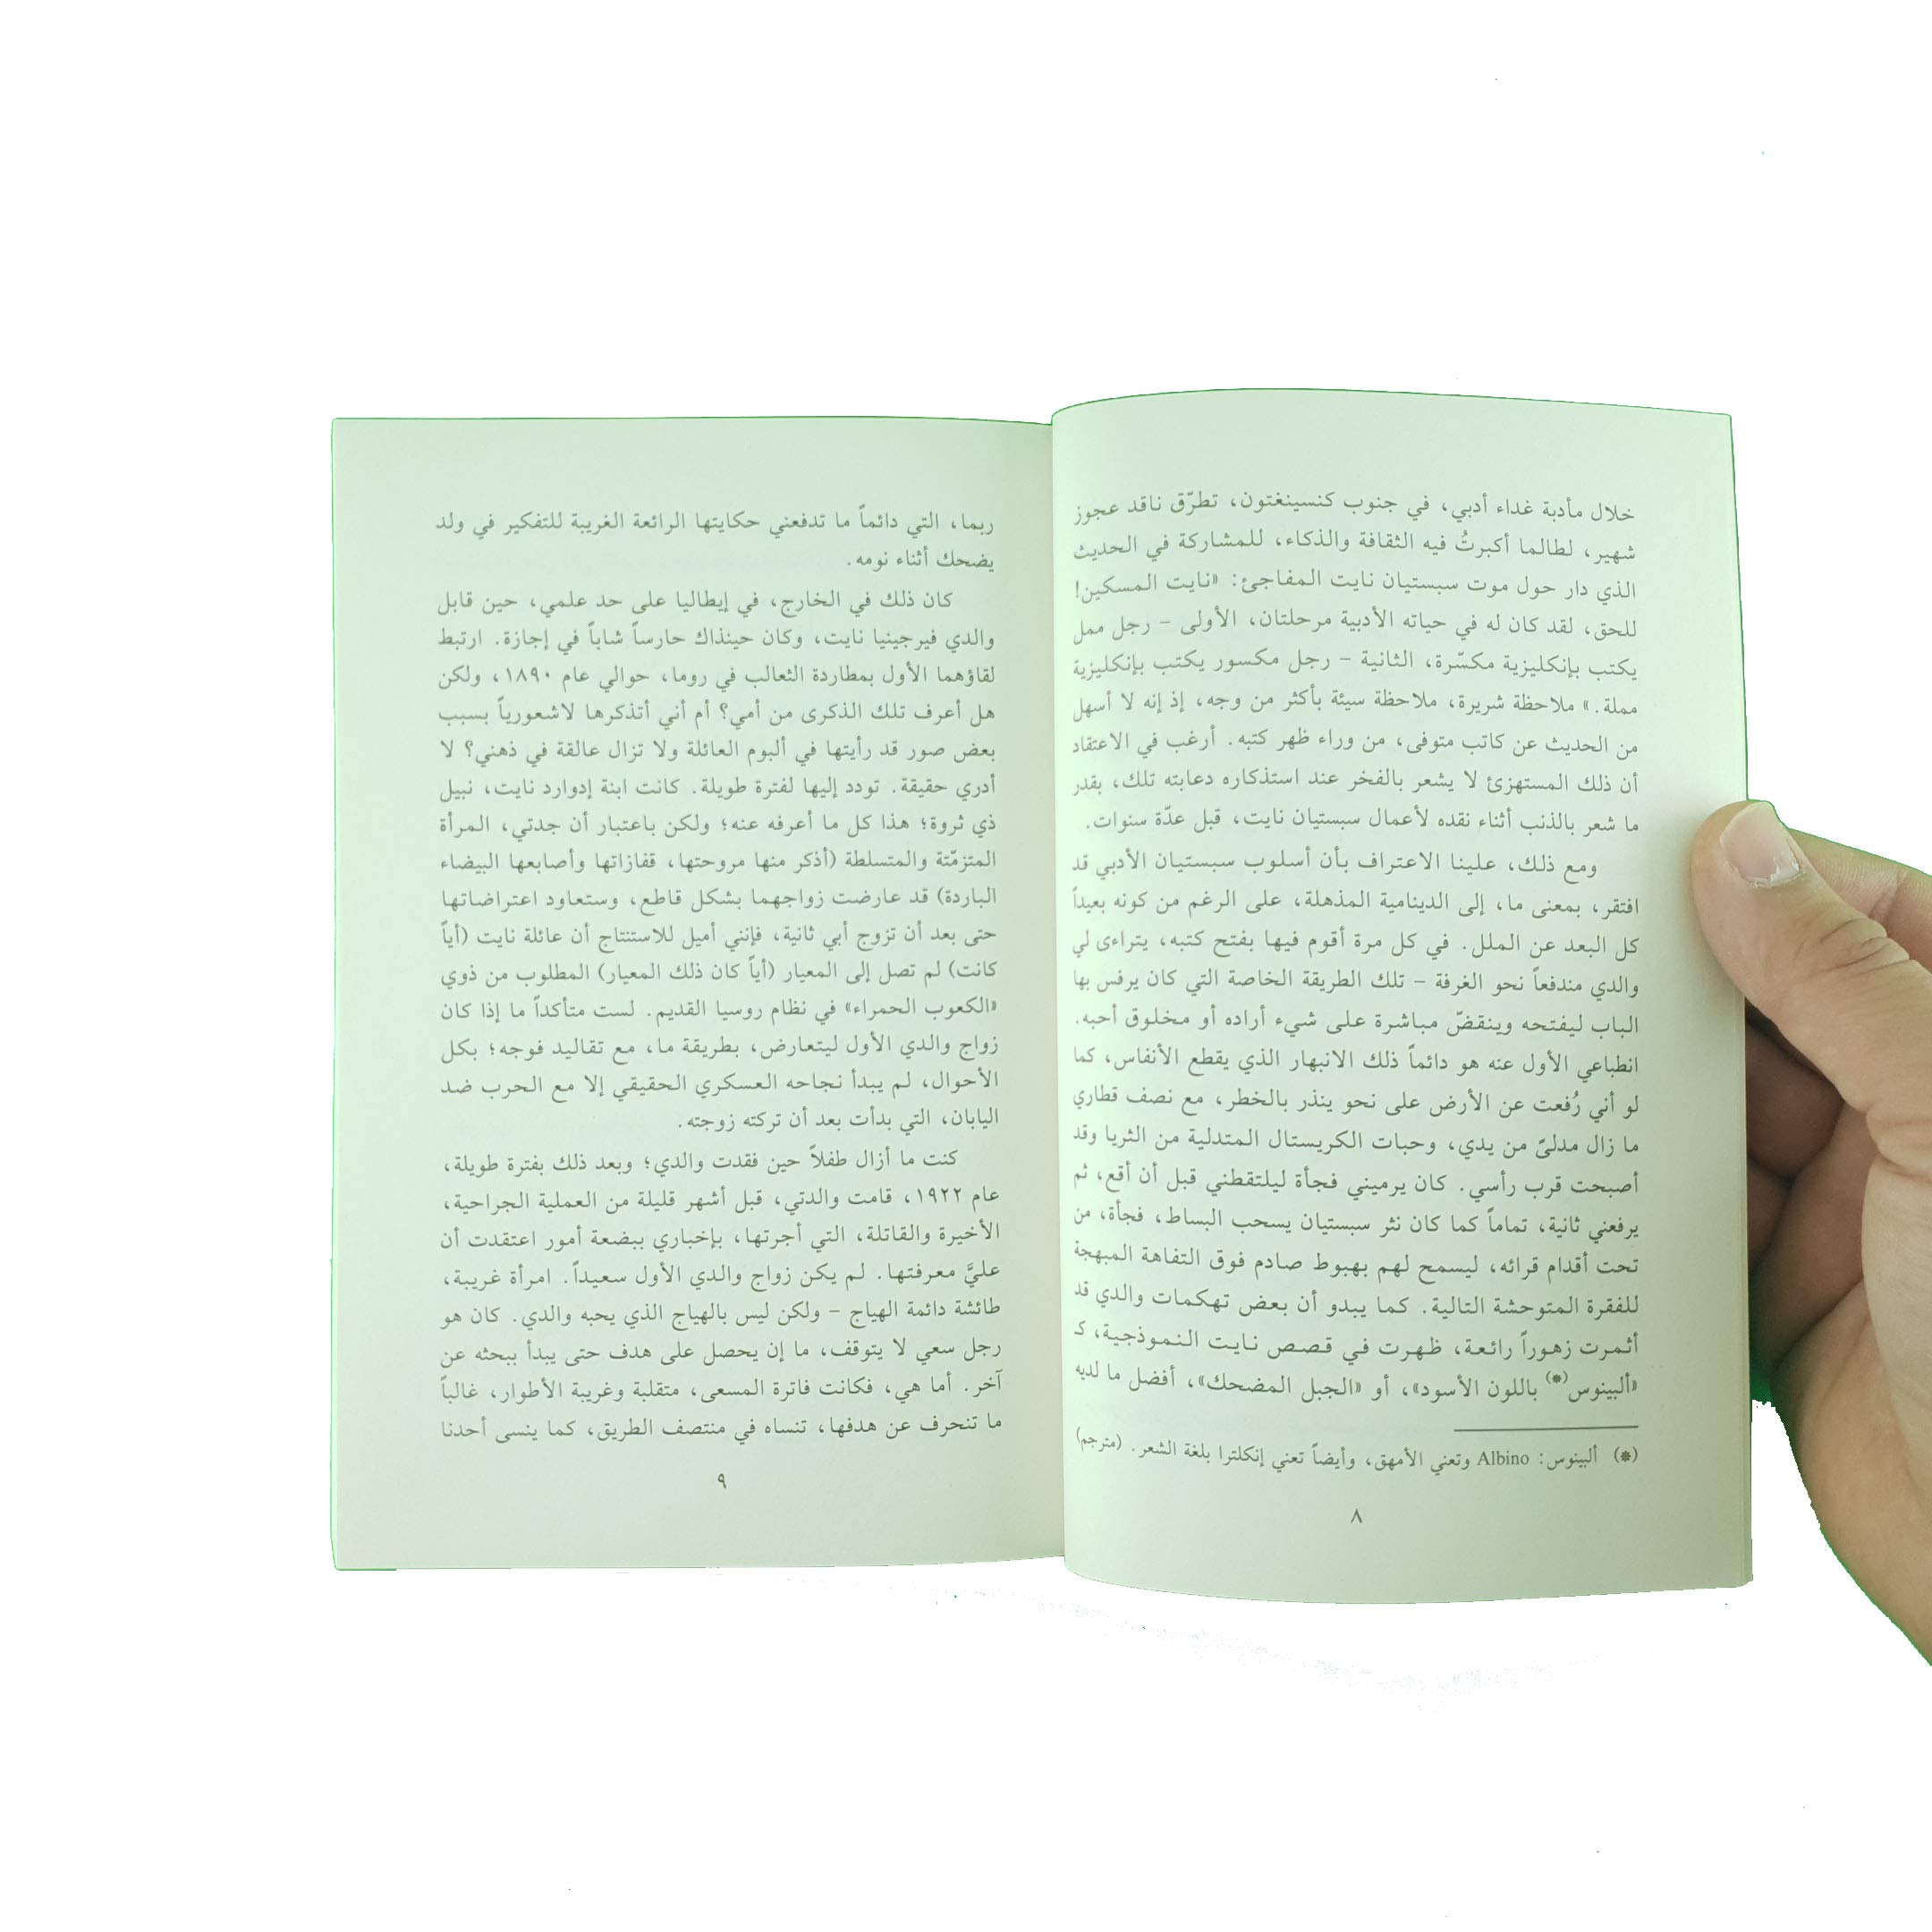 خلال مأدبة غداء أدبي، في جنوب كنسينغتون، تطرّق ناقد عجوز
شهير، لطالما أكبرتُ فيه الثقافة والذكاء، للمشاركة في الحديث
الذي دار حول موت سبستيان نايت المفاجئ: «نايت المسكين!
للحق، لقد كان له في حياته الأدبية مرحلتان، الأولى – رجل ممل
يكتب بإنكليزية مكسّرة، الثانية – رجل مكسور يكتب بإنكليزية
مملة.» ملاحظة شريرة، ملاحظة سيئة بأكثر من وجه، إذ إنه لا أسهل
من الحديث عن كاتب متوفى، من وراء ظهر كتبه. أرغب في الاعتقاد
أن ذلك المستهزئ لا يشعر بالفخر عند استذكاره دعابته تلك، بقدر
ما شعر بالذنب أثناء نقده لأعمال سبستيان نايت، قبل عدّة سنوات.
ومع ذلك، علينا الاعتراف بأن أسلوب سبستيان الأدبي قد
افتقر، بمعنى ما، إلى الدينامية المذهلة، على الرغم من كونه بعيداً
كل البعد عن الملل. في كل مرة أقوم فيها بفتح كتبه، يتراءى لي
والدي مندفعاً نحو الغرفة – تلك الطريقة الخاصة التي كان يرفس بها
الباب ليفتحه وينقضّ مباشرة على شيء أراده أو مخلوق أحبه.
انطباعي الأول عنه هو دائماً ذلك الانبهار الذي يقطع الأنفاس، كما
لو أني رُفعت عن الأرض على نحو ينذر بالخطر، مع نصف قطاري
ما زال مدلىً من يدي، وحبات الكريستال المتدلية من الثريا وقد
أصبحت قرب رأسي. كان يرميني فجأة ليلتقطني قبل أن أقع، ثم
يرفعني ثانية، تماماً كما كان نثر سبستيان يسحب البساط، فجأة، من
تحت أقدام قرائه، ليسمح لهم بهبوط صادم فوق التفاهة المبهجة
للفقرة المتوحشة التالية. كما يبدو أن بعض تهكمات والدي قد
أثمرت زهوراً رائعة، ظهرت في قصص نايت النموذجية، كـ
«ألبينوس(*) باللون الأسود»، أو «الجبل المضحك»، أفضل ما لديه
(*) ألبينوس: Albino وتعني الأمهق، وأيضاً تعني إنكلترا بلغة الشعر. (مترجم)
٨
ربما، التي دائماً ما تدفعني حكايتها الرائعة الغريبة للتفكير في ولد
يضحك أثناء نومه.
كان ذلك في الخارج، في إيطاليا على حد علمي، حين قابل
والدي فيرجينيا نايت، وكان حينذاك حارساً شاباً في إجازة. ارتبط
لقاؤهما الأول بمطاردة الثعالب في روما، حوالي عام ١٨٩٠، ولكن
هل أعرف تلك الذكرى من أمي؟ أم أني أتذكرها لاشعورياً بسبب
بعض صور قد رأيتها في ألبوم العائلة ولا تزال عالقة في ذهني؟ لا
أدري حقيقة. تودد إليها لفترة طويلة. كانت ابنة إدوارد نايت، نبيل
ذي ثروة؛ هذا كل ما أعرفه عنه؛ ولكن باعتبار أن جدتي، المرأة
المتزمّتة والمتسلطة (أذكر منها مروحتها، قفازاتها وأصابعها البيضاء
الباردة) قد عارضت زواجهما بشكل قاطع، وستعاود اعتراضاتها
حتى بعد أن تزوج أبي ثانية، فإنني أميل للاستنتاج أن عائلة نايت (أياً
كانت) لم تصل إلى المعيار (أياً كان ذلك المعيار) المطلوب من ذوي
«الكعوب الحمراء» في نظام روسيا القديم. لست متأكداً ما إذا كان
زواج والدي الأول ليتعارض، بطريقة ما، مع تقاليد فوجه؛ بكل
الأحوال، لم يبدأ نجاحه العسكري الحقيقي إلا مع الحرب ضد
اليابان، التي بدأت بعد أن تركته زوجته.
كنت ما أزال طفلاً حين فقدت والدي؛ وبعد ذلك بفترة طويلة،
عام ١٩٢٢، قامت والدتي، قبل أشهر قليلة من العملية الجراحية،
الأخيرة والقاتلة، التي أجرتها، بإخباري ببضعة أمور اعتقدت أن
عليَّ معرفتها. لم يكن زواج والدي الأول سعيداً. امرأة غريبة،
طائشة دائمة الهياج – ولكن ليس بالهياج الذي يحبه والدي. كان هو
رجل سعي لا يتوقف، ما إن يحصل على هدف حتى يبدأ ببحثه عن
آخر. أما هي، فكانت فاترة المسعى، متقلبة وغريبة الأطوار، غالباً
ما تنحرف عن هدفها، تنساه في منتصف الطريق، كما ينسى أحدنا
٩